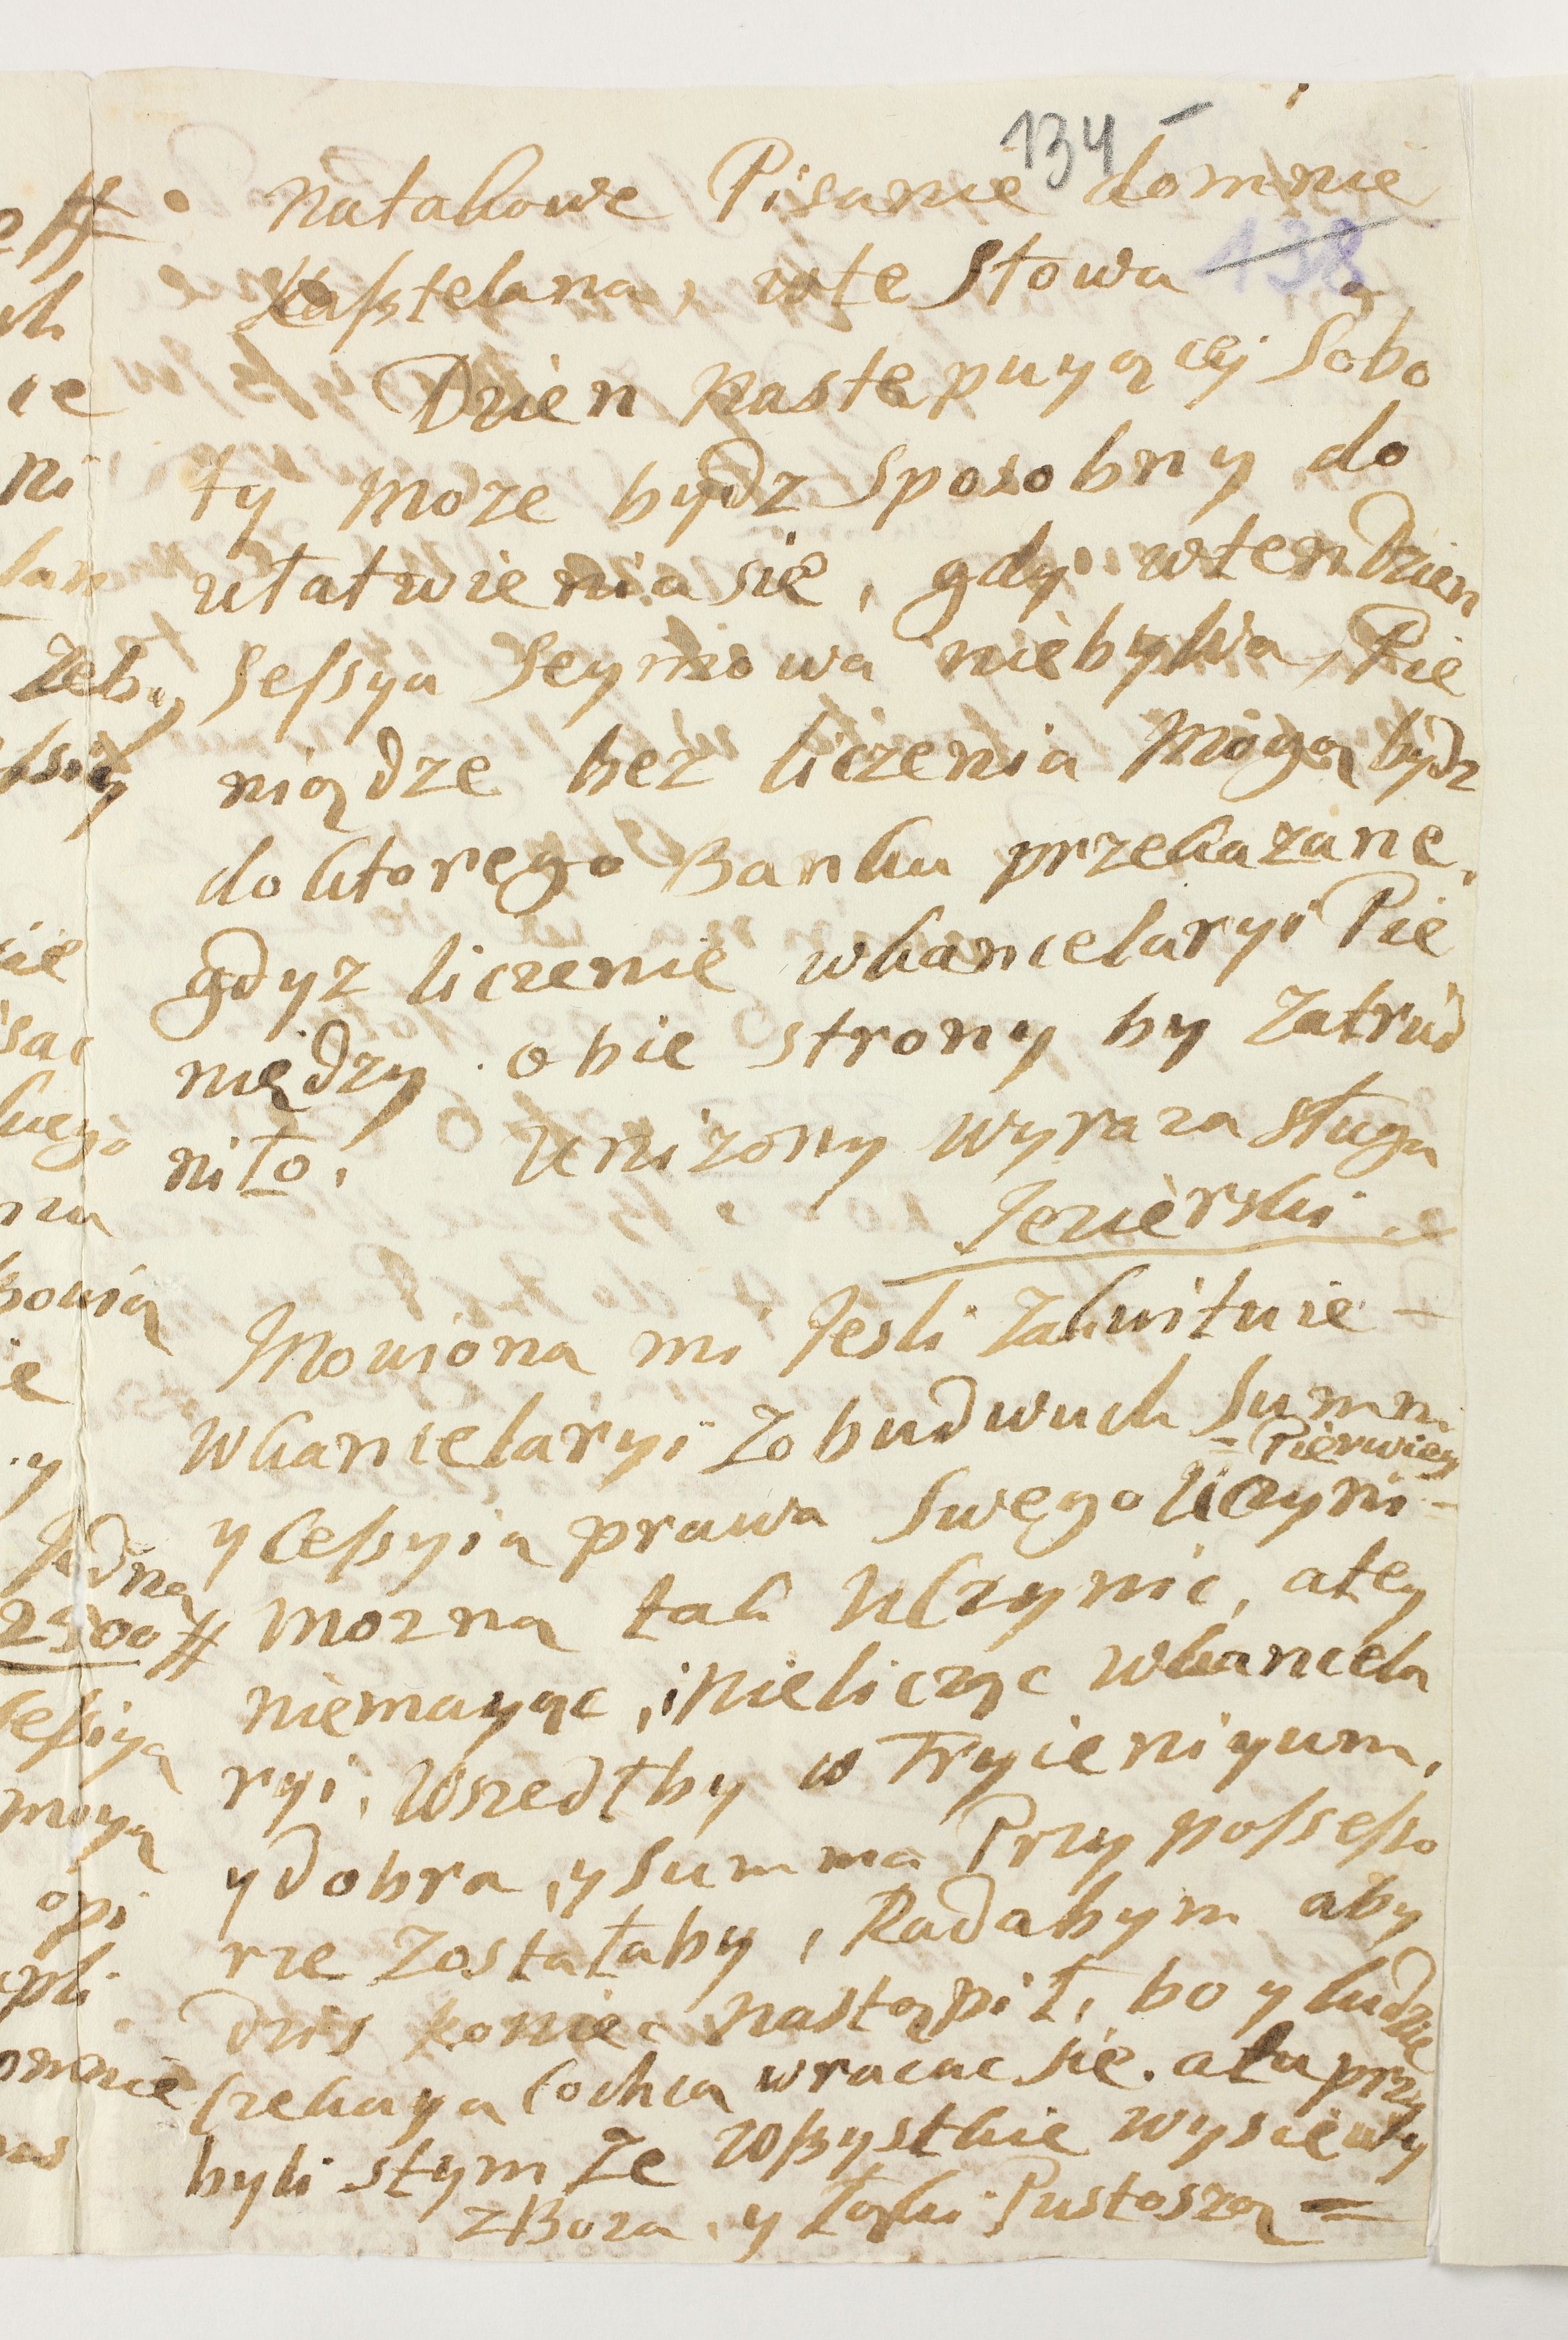 134
natakowe Pisanie domnie
138
Kasztelana, wte Słowa
Dzien Nastepuyący Sobo
ty moze bydz Sposobny do
ułatwienia się, gdy wten Dzien
Sessya Seymowa niebywa, Pie
niądze bez liczenia Mogą bydz
do ktorego Banku przekazane,
gdyz liczenie wkancelaryi Pie
niędzy obie strony by Zatrud
niło. Unizony wyraza sługa
Jezierski
Mowiona mi Jesli Zakwituie
wkancelaryi Zobudwuch Summ
Pierwiey
y Cessyią prawa Swego Uczyni
mozna tak Uczynic, atey
niemayąc, i Nielicząc wkancela
ryi, wszedłby w Tryieniyum,
y Dobra, y Summa Przy possesso
rze Zostałaby, Radabym aby
Dzis koniec nastąpił, bo y ludzie
czekaya Co chca wracac sie. a tu przy
byli stym Ze wszystkie wysiewy
zBoza, y Łąki Pustoszą =
ch
ce
ni
Zeby
sac
na
ie
y
Jedna
2500 #
Cessiyą
moyą
opi